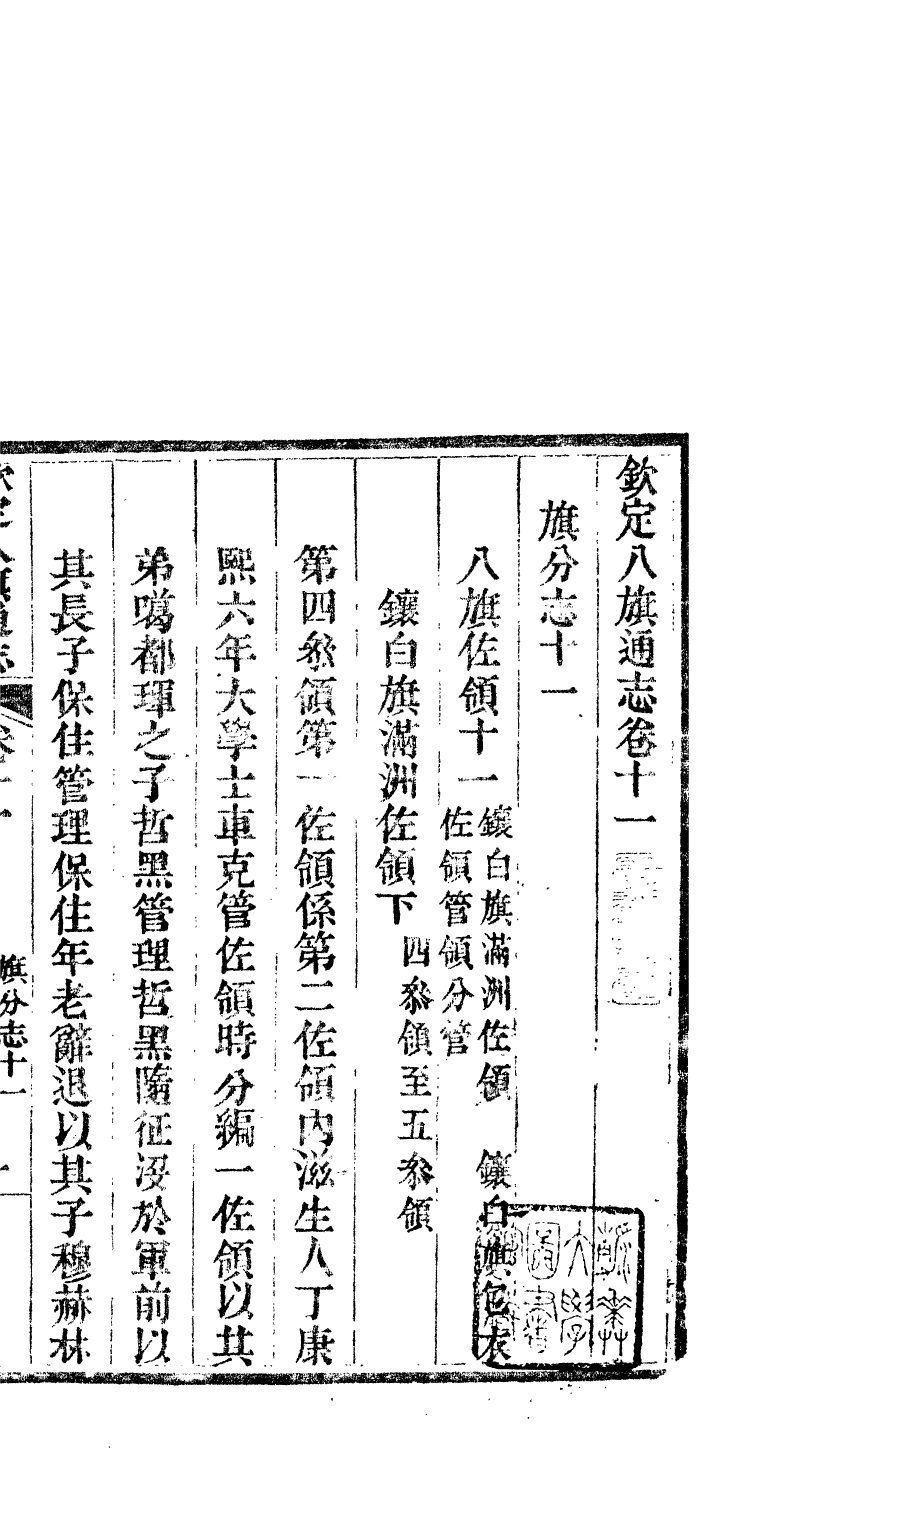 欽定八旗通志卷十一
旗分志十一
八旗佐領十一 鑲白旗滿洲佐領 鑲白旗包衣
佐領管領分管
鑲白旗滿洲佐領下 四叅領至五叅領
第四叅領第一佐領係第二佐領內滋生人丁康
熙六年大學士車克管佐領時分編一佐領以其
弟噶都琿之子哲黑管理哲黑隨征沒於軍前以
其長子保住管理保住年老辭退以其子穆赫林
旗分志十一